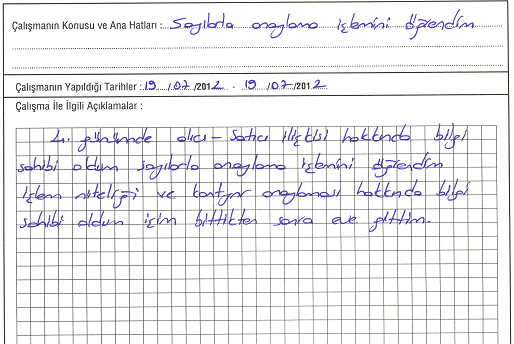 Çalışmanın Konusu ve Ana Hatları : Sayıbda onaylama işlemini öğrendim
Çalışmanın Yapıldığı Tarihler : 19 / 07 /2012 - 19 /07 /2012
Çalışma İle İlgili Açıklamalar :
4. günümde alıcı - satıcı ilişkisi hakkında bilgi
sahibi oldum sayıbda onaylama işlemini öğrendim
işlem niteliği ve kontyar onaylaması hakkında bilgi
sahibi oldum işim bittikten sonra eve gittim.